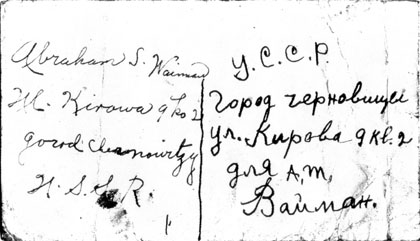 Abraham S. Waiman
Ul. Kirowa 9 ko 2
gorod chernowitzy
U. S. S. R.
У.С.С.Р.
город черновицы
ул. Кирова 9 кв. 2
для А.Т.
Вайман.